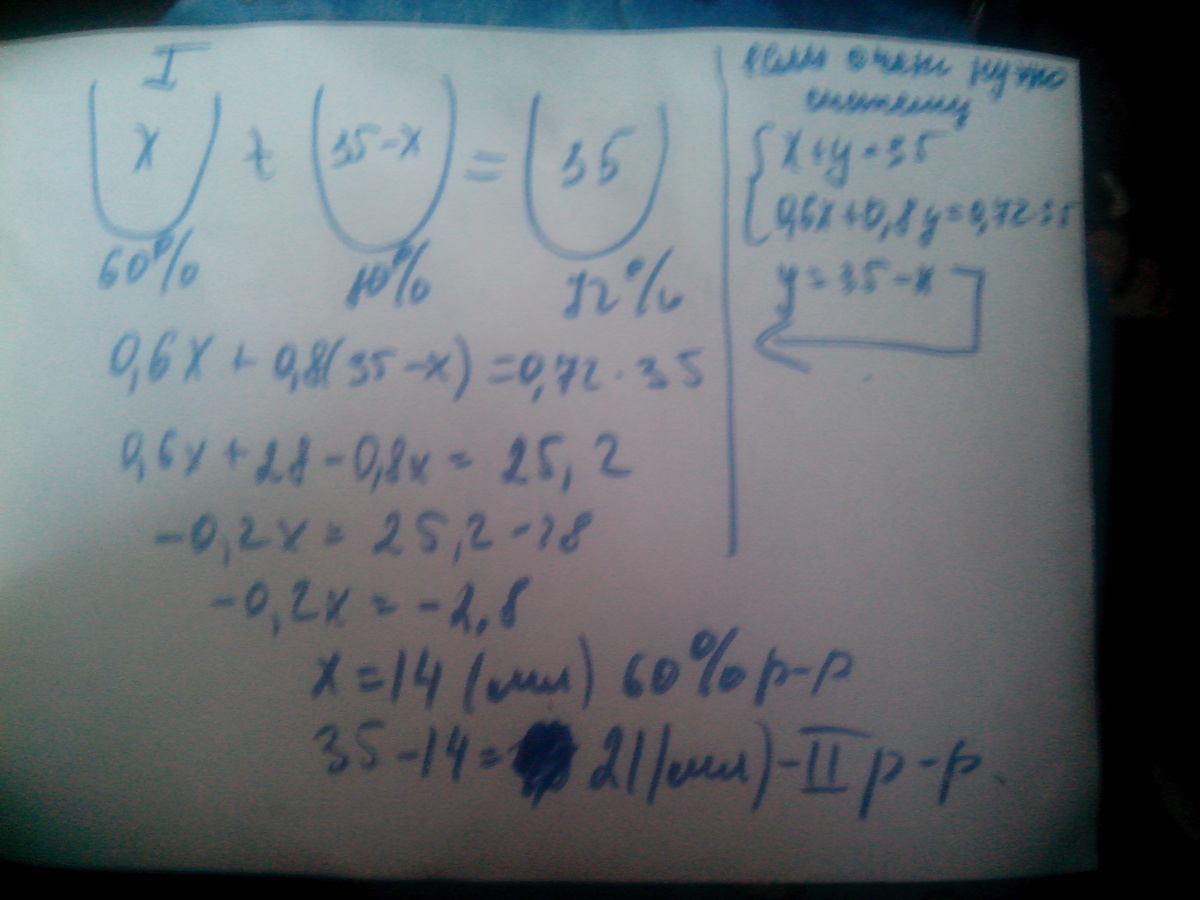 I
x + 35-x = 35
60% 80% 72%
0,6x + 0,8(35-x) = 0,72·35
0,6x + 28 - 0,8x = 25,2
-0,2x = 25,2-28
-0,2x = -2,8
x = 14 (мл) 60% р-р
35-14= 21 (мл) - II р-р.
если очень нужно
систему
{ x+y=35
0,6x+0,8y=0,72·35
y=35-x